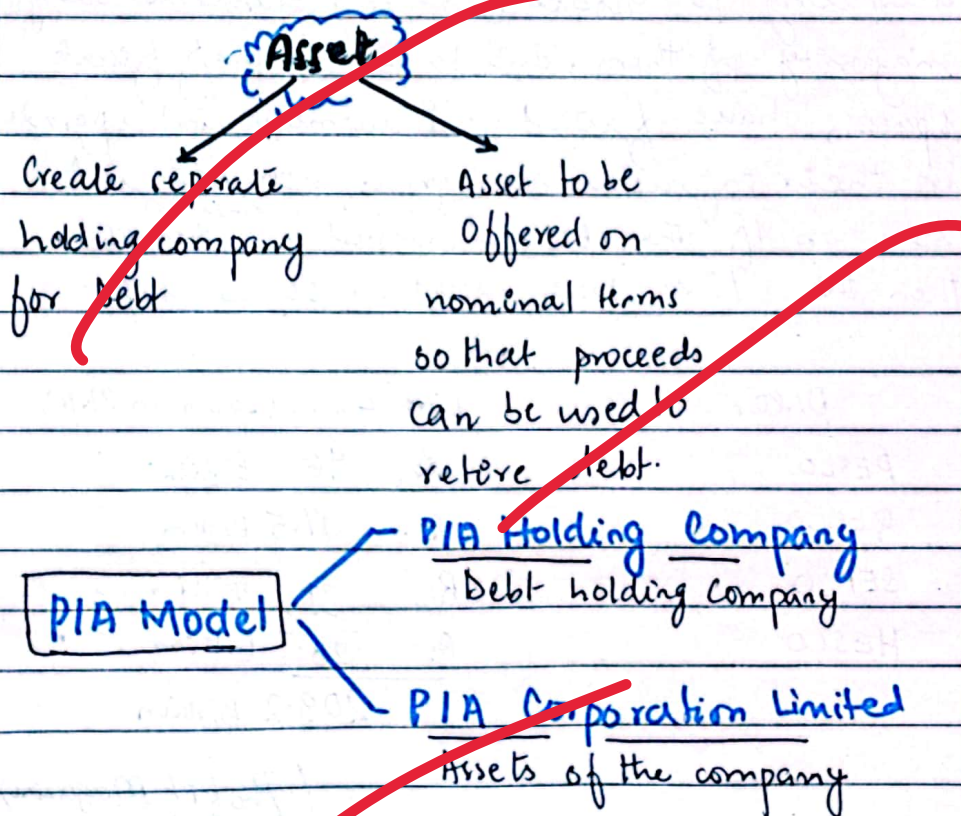 Asset
Create seperate
holding company
for Debt
Asset to be
Offered on
nominal terms
so that proceeds
can be used to
retire debt.
PIA Model
PIA Holding Company
Debt holding Company
PIA Corporation Limited
Assets of the company